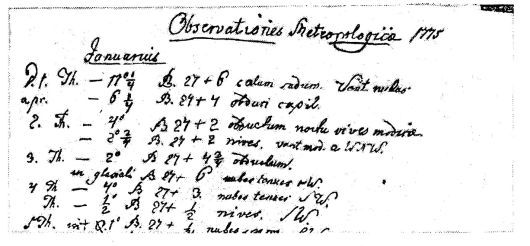 Observationes Meteorologicae 1775
Januarius
D. 1. Th. — 17° ¼ B. 27 + 6 cælum sudum. Vent. nullus
apr. — 6 ¼ B. 27 + 4
2. Th. — 4° B 27 + 2 obductum noctu nives
— 2° ¾ B. 27 + 2 nives. vent. mod. a WNW.
3. Th. — 2° B 27 + 4 ¾ obductum.
in glaciali B. 27 + 6 nubes tenues SW.
4 Th — 4° B. 27 + 3. nubes tenues SW.
Th. — ½° B. 27 + ½ nives. SW
5 Th. B. 27 + nubes SW.